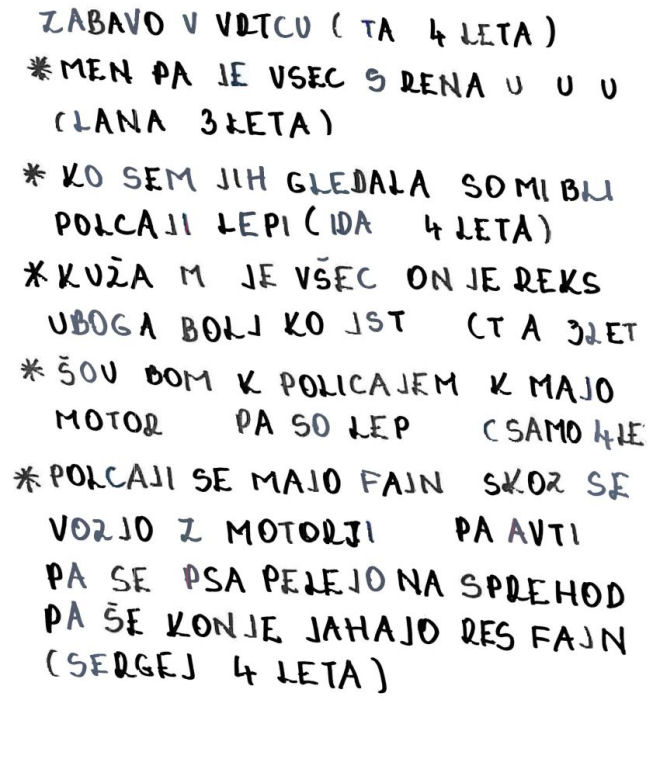 ZABAVO V VRTCU ( TA 4 LETA )
* MEN PA JE VSEC S RENA U U U
(LANA 3 LETA)
* KO SEM JIH GLEDALA SO MI BLI
POLCAJI LEPI (IDA 4 LETA)
* KUŽA M JE VŠEC ON JE REKS
UBOGA BOLJ KO JST (T A 3 LET
* ŠOU BOM K POLICAJEM K MAJO
MOTOR PA SO LEP (SAMO 4 LE
* POLCAJI SE MAJO FAJN SKOZ SE
VOZJO Z MOTORJI PA AVTI
PA SE PSA PELEJO NA SPREHOD
PA ŠE KONJE JAHAJO RES FAJN
(SERGEJ 4 LETA)